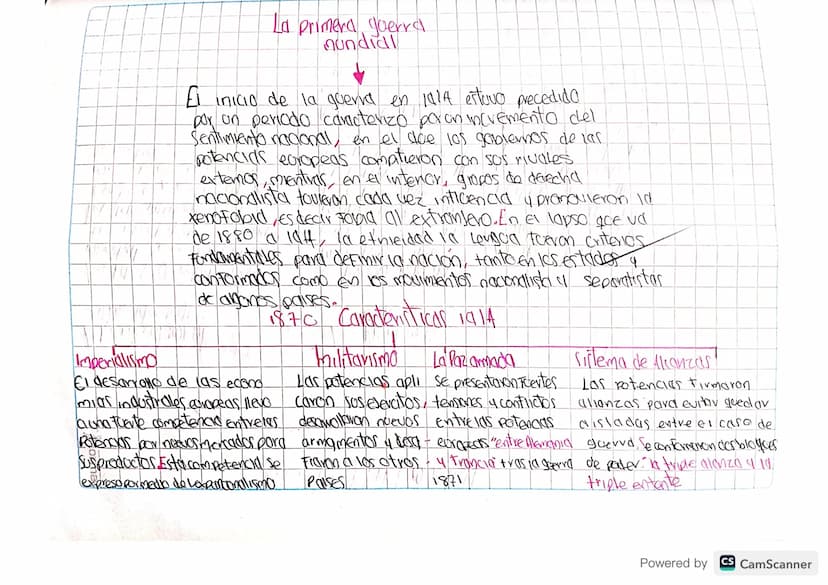 La primera guerra
mundial
El inicio de la guerra en 1914 estuvo precedido
por un periodo caracterizo por un incremento del
Sentimiento nacional, en el que los gobiernos de las
potencias europeas combatieron con sus rivales
externos, mientras, en el interior, grupos de derecha
nacionalista tuvieron cada vez influencia y promovieron la
xenofobia, es decir fobia al extranjero. En el lapso que va
de 1880 a 1914, la etnicidad la lengua fueron criterios
fundamentales para definir la nación, tanto en los estados y
conformados como en los movimientos nacionalista y separatistas
de algunos países.
1870 Características 1914
Imperialismo
El desarrollo de las econo
mias industrales europeas llevo
a una fuerte competencia entre las
Potencias por nuevos mercados para
sus productos. Esta competencia se
expreso por medio de
militarismo
Las potencias apli
caron sus ejercitos,
desarrollaron nuevos
armamentos y
a los otros
Países
La Paz armada
Se presentaron fuertes
tensiones y conflictos
entre las potencias
europeas "entre Alemania
y Francia" tras la guerra
1871
Sistema de Alianzas
Las potencias firmaron
alianzas para evitar quedar
aisladas entre el caso de
guerra. Se conformaron dos bloques
de poder: la triple alianza y la
triple entante
Powered by CS CamScanner